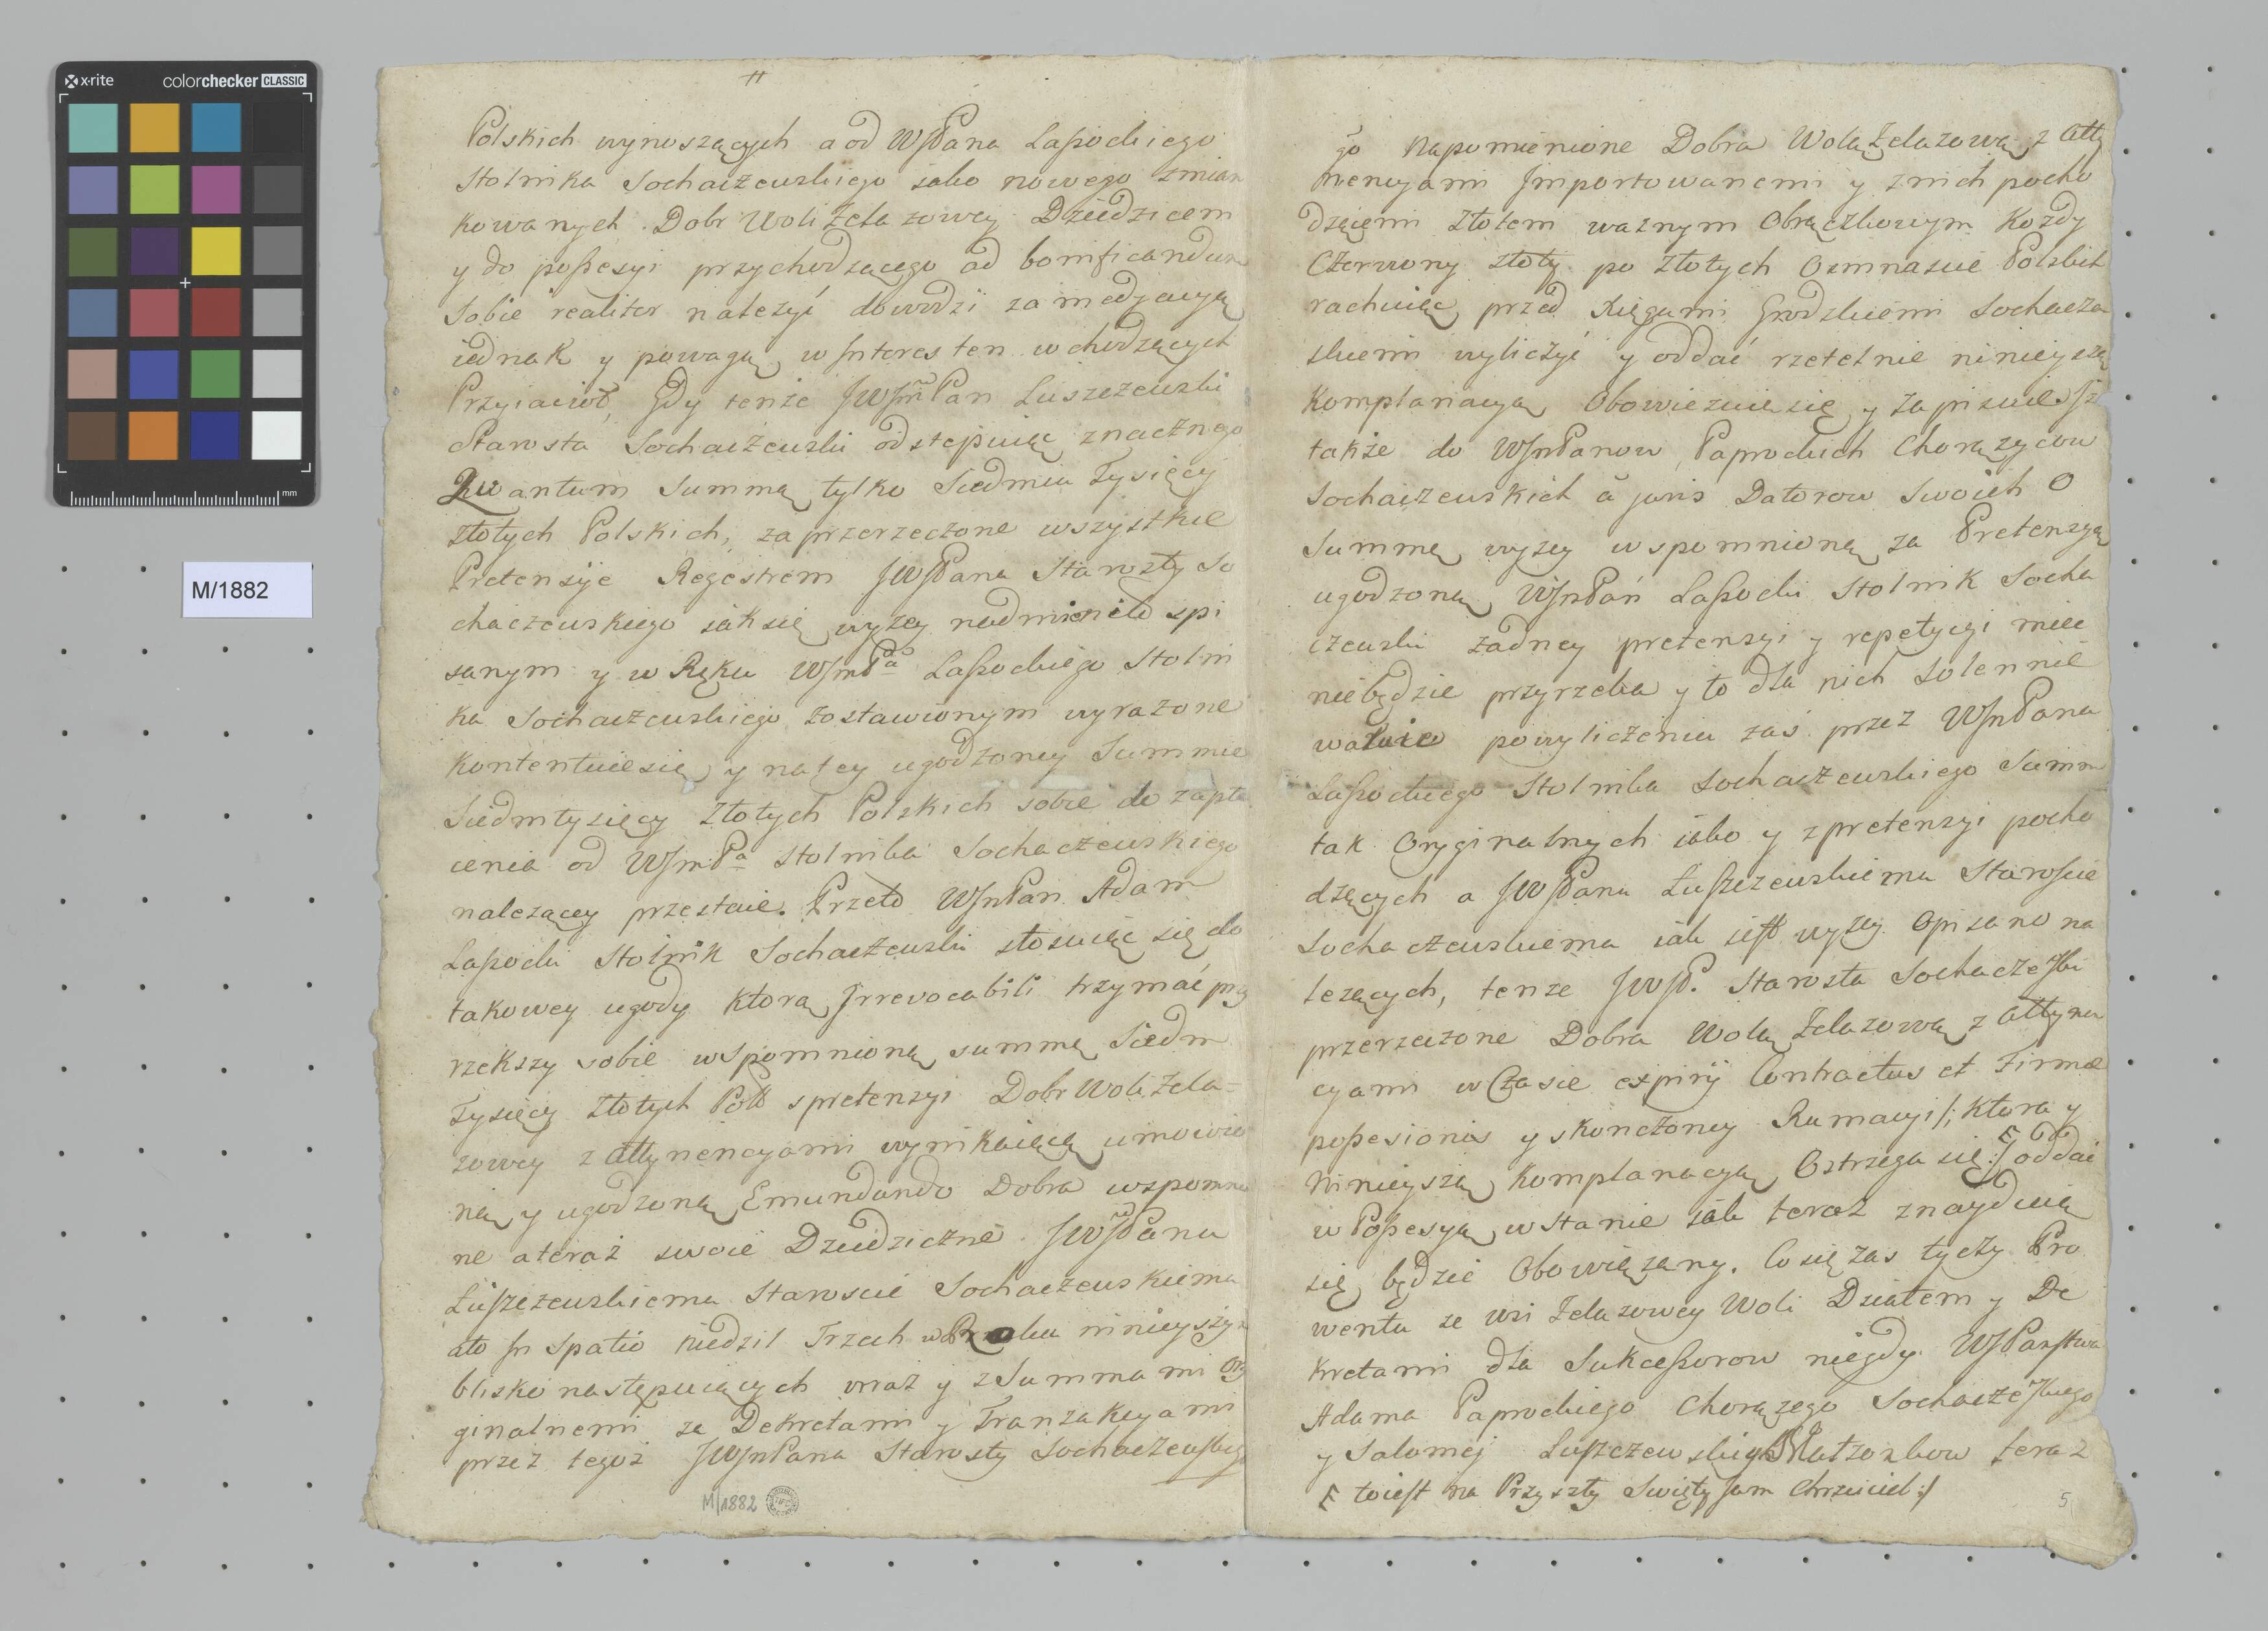 x·rite colorchecker CLASSIC
mm
M/1882
Polskich wynoszących a od WJPana Lasockiego
Stolnika Sochaczewskiego iako nowego zmian
kowanych Dobr Woli Zelazowey Dziedzicem
y do possesyi przychodzącego ad bonificandum
Sobie realiter należyć dowodzi za medyacyą
iednak y powagą w Interes ten wchodzących
Przyiacioł, Gdy tenże JWJmPan Luszczewski
Starosta Sochaczewski odstępuiąc znacznego
Quantum Summą tylko Siedmiu Tysięcy
Złotych Polskich, za przerzeczone wszystkie
Pretensye Regestrem JWJPana Starosty So
chaczewskiego iak się wyzey nadmieniło spi
sanym y w Ręku WJmPa Lasockiego Stolni
ka Sochaczewskiego zostawionym wyrażone
kontentuie się y na tey ugodzoney Summie
Siedmtysięcy Złotych Polskich sobie do zapła
cenia od WJmPa Stolnika Sochaczewskiego
należącey przestaie. Przeto WJmPan Adam
Lasocki Stolnik Sochaczewski stosuiąc się do
takowey ugody ktorą Irrevocabili trzymać przy
rzekszy sobie wspomnioną summę Siedm
Tysięcy Złotych Polk s pretensyi Dobr Woli Zela=
zowey z Attynencyami wynikaiącą umowio
ną y ugodzoną Emundando Dobra wspomnio
ne a teraz swoie Dziedziczne JWJPanu
Luszczewskiemu Staroscie Sochaczewskiemu
ato In Spatio Niedziel Trzech w Roku ninieyszym
blisko następuiących wraz y z Summami Ory
ginalnemi za Dekretami y Tranzakcyami
przez tegoż JWJmPana Starosty Sochaczewskieg
M/1882
go Napomienione Dobra Wolą Zelazową z Atty
nencyami Importowanemi y z nich pocho
dzącemi Złotem ważnym Obrączkowym Kożdy
Czerwony złoty po Złotych Osmnascie Polskich
rachuiąc przed Xięgami Grodzkiemi Sochacze
skiemi wyliczyć y oddać rzetelnie ninieyszą
Komplanacyą Obowiezuie się y zapisuie się
także do WJmPanow Paprockich Chorązycow
Sochaczewskich a juris Datorow Swoich O
Summę wyzey wspomnioną za Pretensyą
ugodzoną WJmPan Lasocki Stolnik Socha
czewski żadney pretensyi y repetycyi mieć
niebędzie przyrzeka y to dla nich Solennie
po wyliczeniu zaś przez WJmPana
Lasockiego Stolnika Sochaczewskiego Summ
tak Oryginalnych iako y z pretensyi pocho
dzących a JWJPanu Luszczewskiemu Staroscie
Sochaczewskiemu iak iest wyzey Opisano na
lezących, tenże JWJP. Starosta Sochaczewski
przerzeczone Dobra Wolą Zelazową z Attynen
cyami w Czasie expirij Contractus et Firmæ
possesionis y skonczoney Rumacyi /: ktorą y
Ninieyszą Komplanacyą Ostrzega się :/ oddać
w Possesyą w Stanie iak teraz znayduią
się będzie Obowiązany. Co się zas tyczy Pro
wentu ze wsi Zelazowey Woli Działem y De
kretami dla Sukcessorow niegdy WJPanstwa
Adama Paprockiego Chorązego Sochaczewskiego
y Salomei Luszczewskiey Małzonkow teraz
F to iest na Przyszły Swięty Jan Chrzciciel :/
5